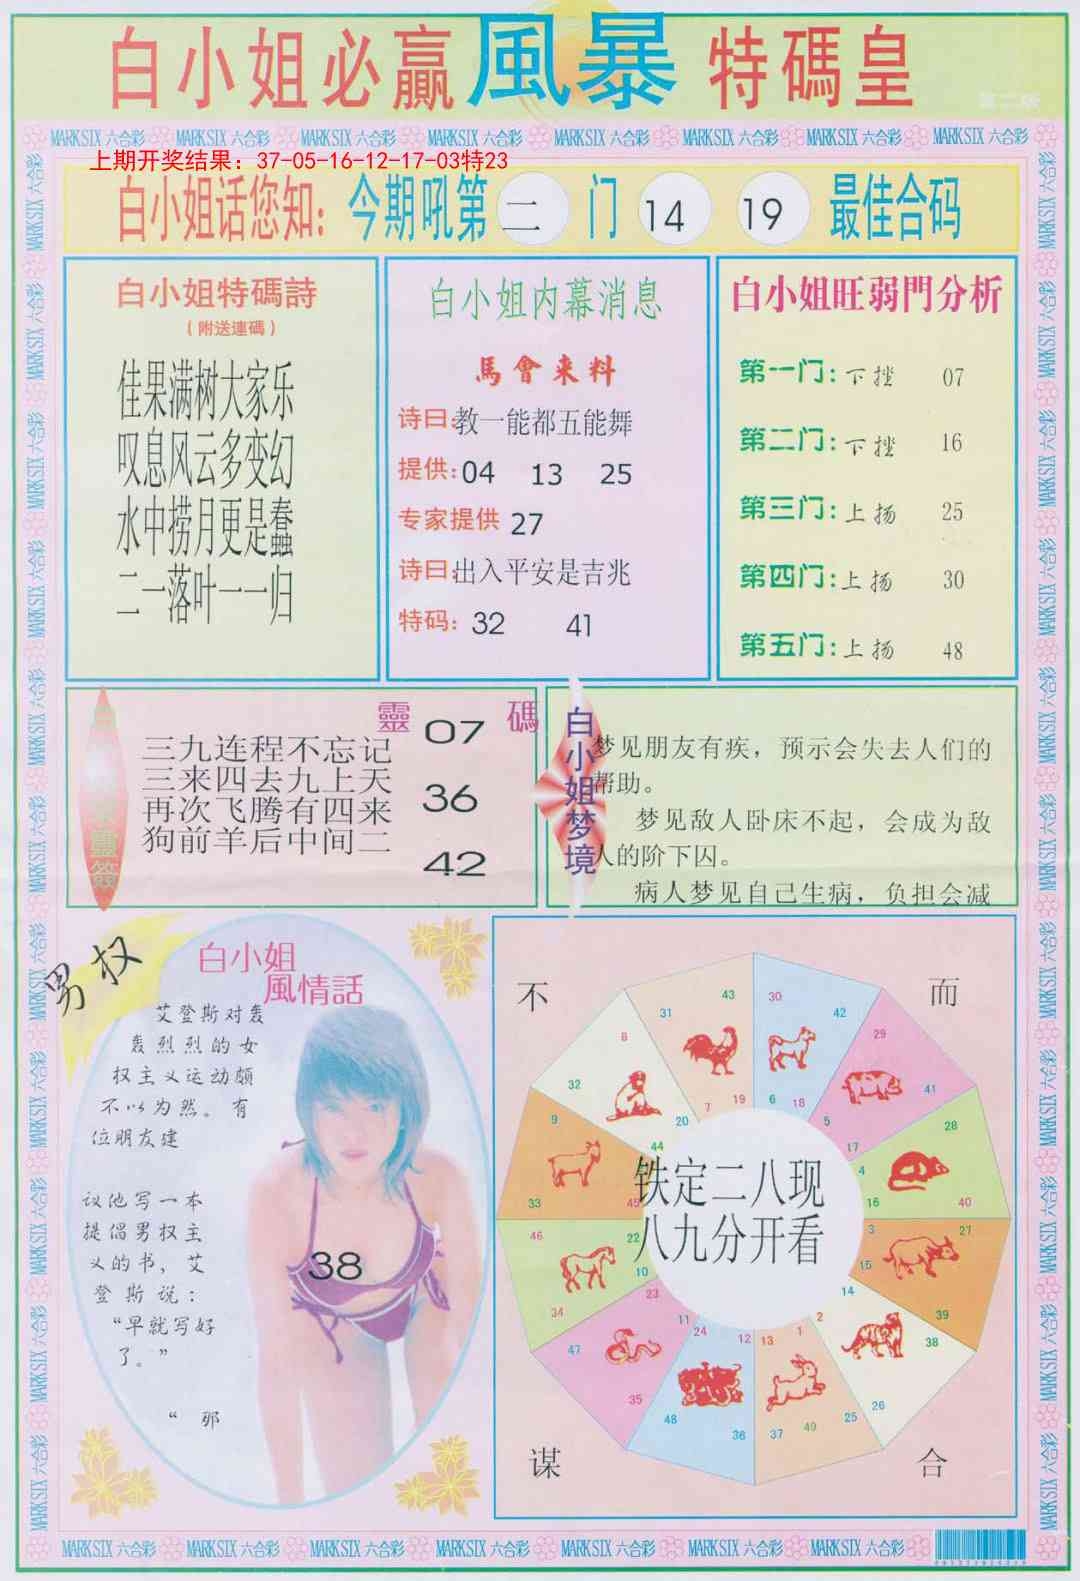 白小姐必赢風暴特碼皇
第二版
MARK SIX 六合彩 MARK SIX 六合彩 MARK SIX 六合彩 MARK SIX 六合彩 MARK SIX 六合彩 MARK SIX 六合彩 MARK SIX 六合彩 MARK SIX 六合彩
上期开奖结果：37-05-16-12-17-03特23
白小姐话您知：今期吼第二门 14 19 最佳合码
白小姐特碼詩
（附送連碼）
佳果满树大家乐
叹息风云多变幻
水中捞月更是蠢
二一落叶一一归
白小姐内幕消息
馬會来料
诗曰：教一能都五能舞
提供：04 13 25
专家提供 27
诗曰：出入平安是吉兆
特码：32 41
白小姐旺弱門分析
第一门：下挫 07
第二门：下挫 16
第三门：上扬 25
第四门：上扬 30
第五门：上扬 48
靈簽
靈碼
三九连程不忘记
三来四去九上天
再次飞腾有四来
狗前羊后中间二
07
36
42
白小姐梦境
梦见朋友有疾，预示会失去人们的
帮助。
梦见敌人卧床不起，会成为敌
人的阶下囚。
病人梦见自己生病，负担会减
男权
白小姐
風情話
艾登斯对轰
轰烈烈的女
权主义运动颇
不以为然。有
位朋友建
议他写一本
提倡男权主
义的书，艾
登斯说：
“早就写好
了。”
“ 邪
38
不 而
谋 合
铁定二八现
八九分开看
31 43 7 19
30 42 6 18
29 41 5 17
28 40 4 16
27 39 3 15
14 2 38 26
1 13 25 37 49
12 24 36 48
11 23 35 47
46 22 10 34
9 33 45
8 32 20 44
MARK SIX 六合彩 MARK SIX 六合彩 MARK SIX 六合彩 MARK SIX 六合彩 MARK SIX 六合彩 MARK SIX 六合彩 MARK SIX 六合彩